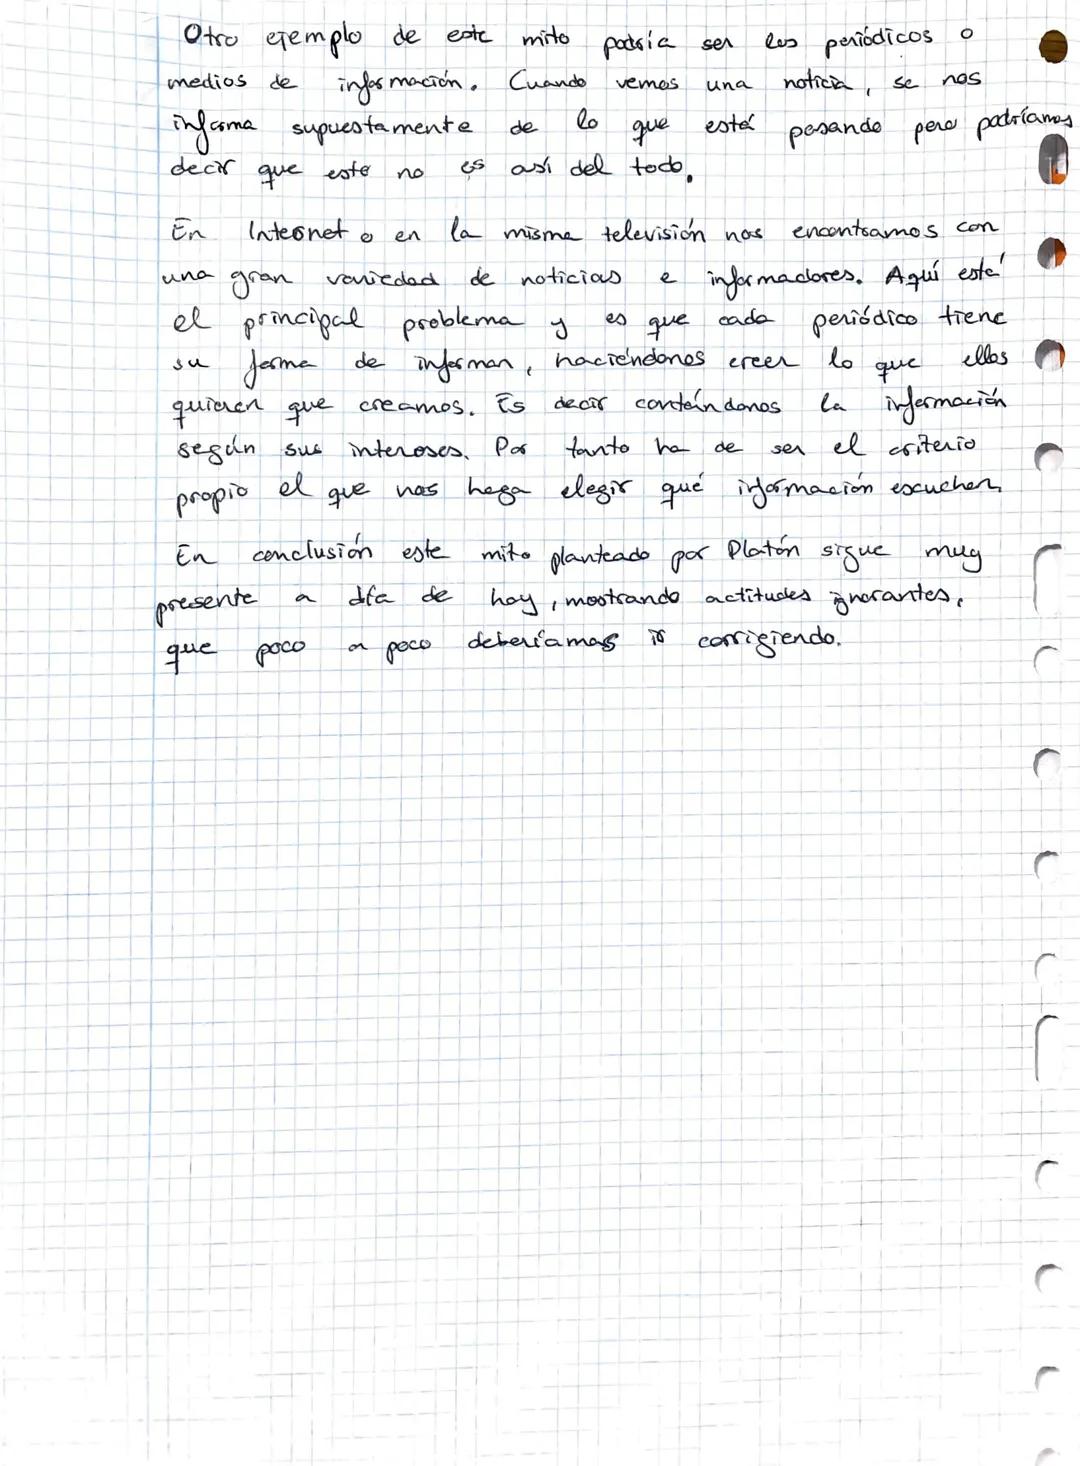 Otro ejemplo de este mito podría ser los periódicos o
medios de información. Cuando vemos una noticia, se nos
informa supuestamente de lo que está pasando pero podríamos
decir que esto no es así del todo.
En Internet o en la misma televisión nos encontramos con
una gran variedad de noticias e informadores. Aquí está
el principal problema y es que cada periódico tiene
su forma de informan, haciéndonos creer lo que ellos
quieren que creamos. Es decir contándonos la información
según sus intereses. Por tanto ha de ser el criterio
propio el que nos haga elegir qué información escuchen
En conclusión este mito planteado por Platón sigue muy
presente a día de hoy, mostrando actitudes ignorantes,
que poco a poco deberíamos ir corrigiendo.